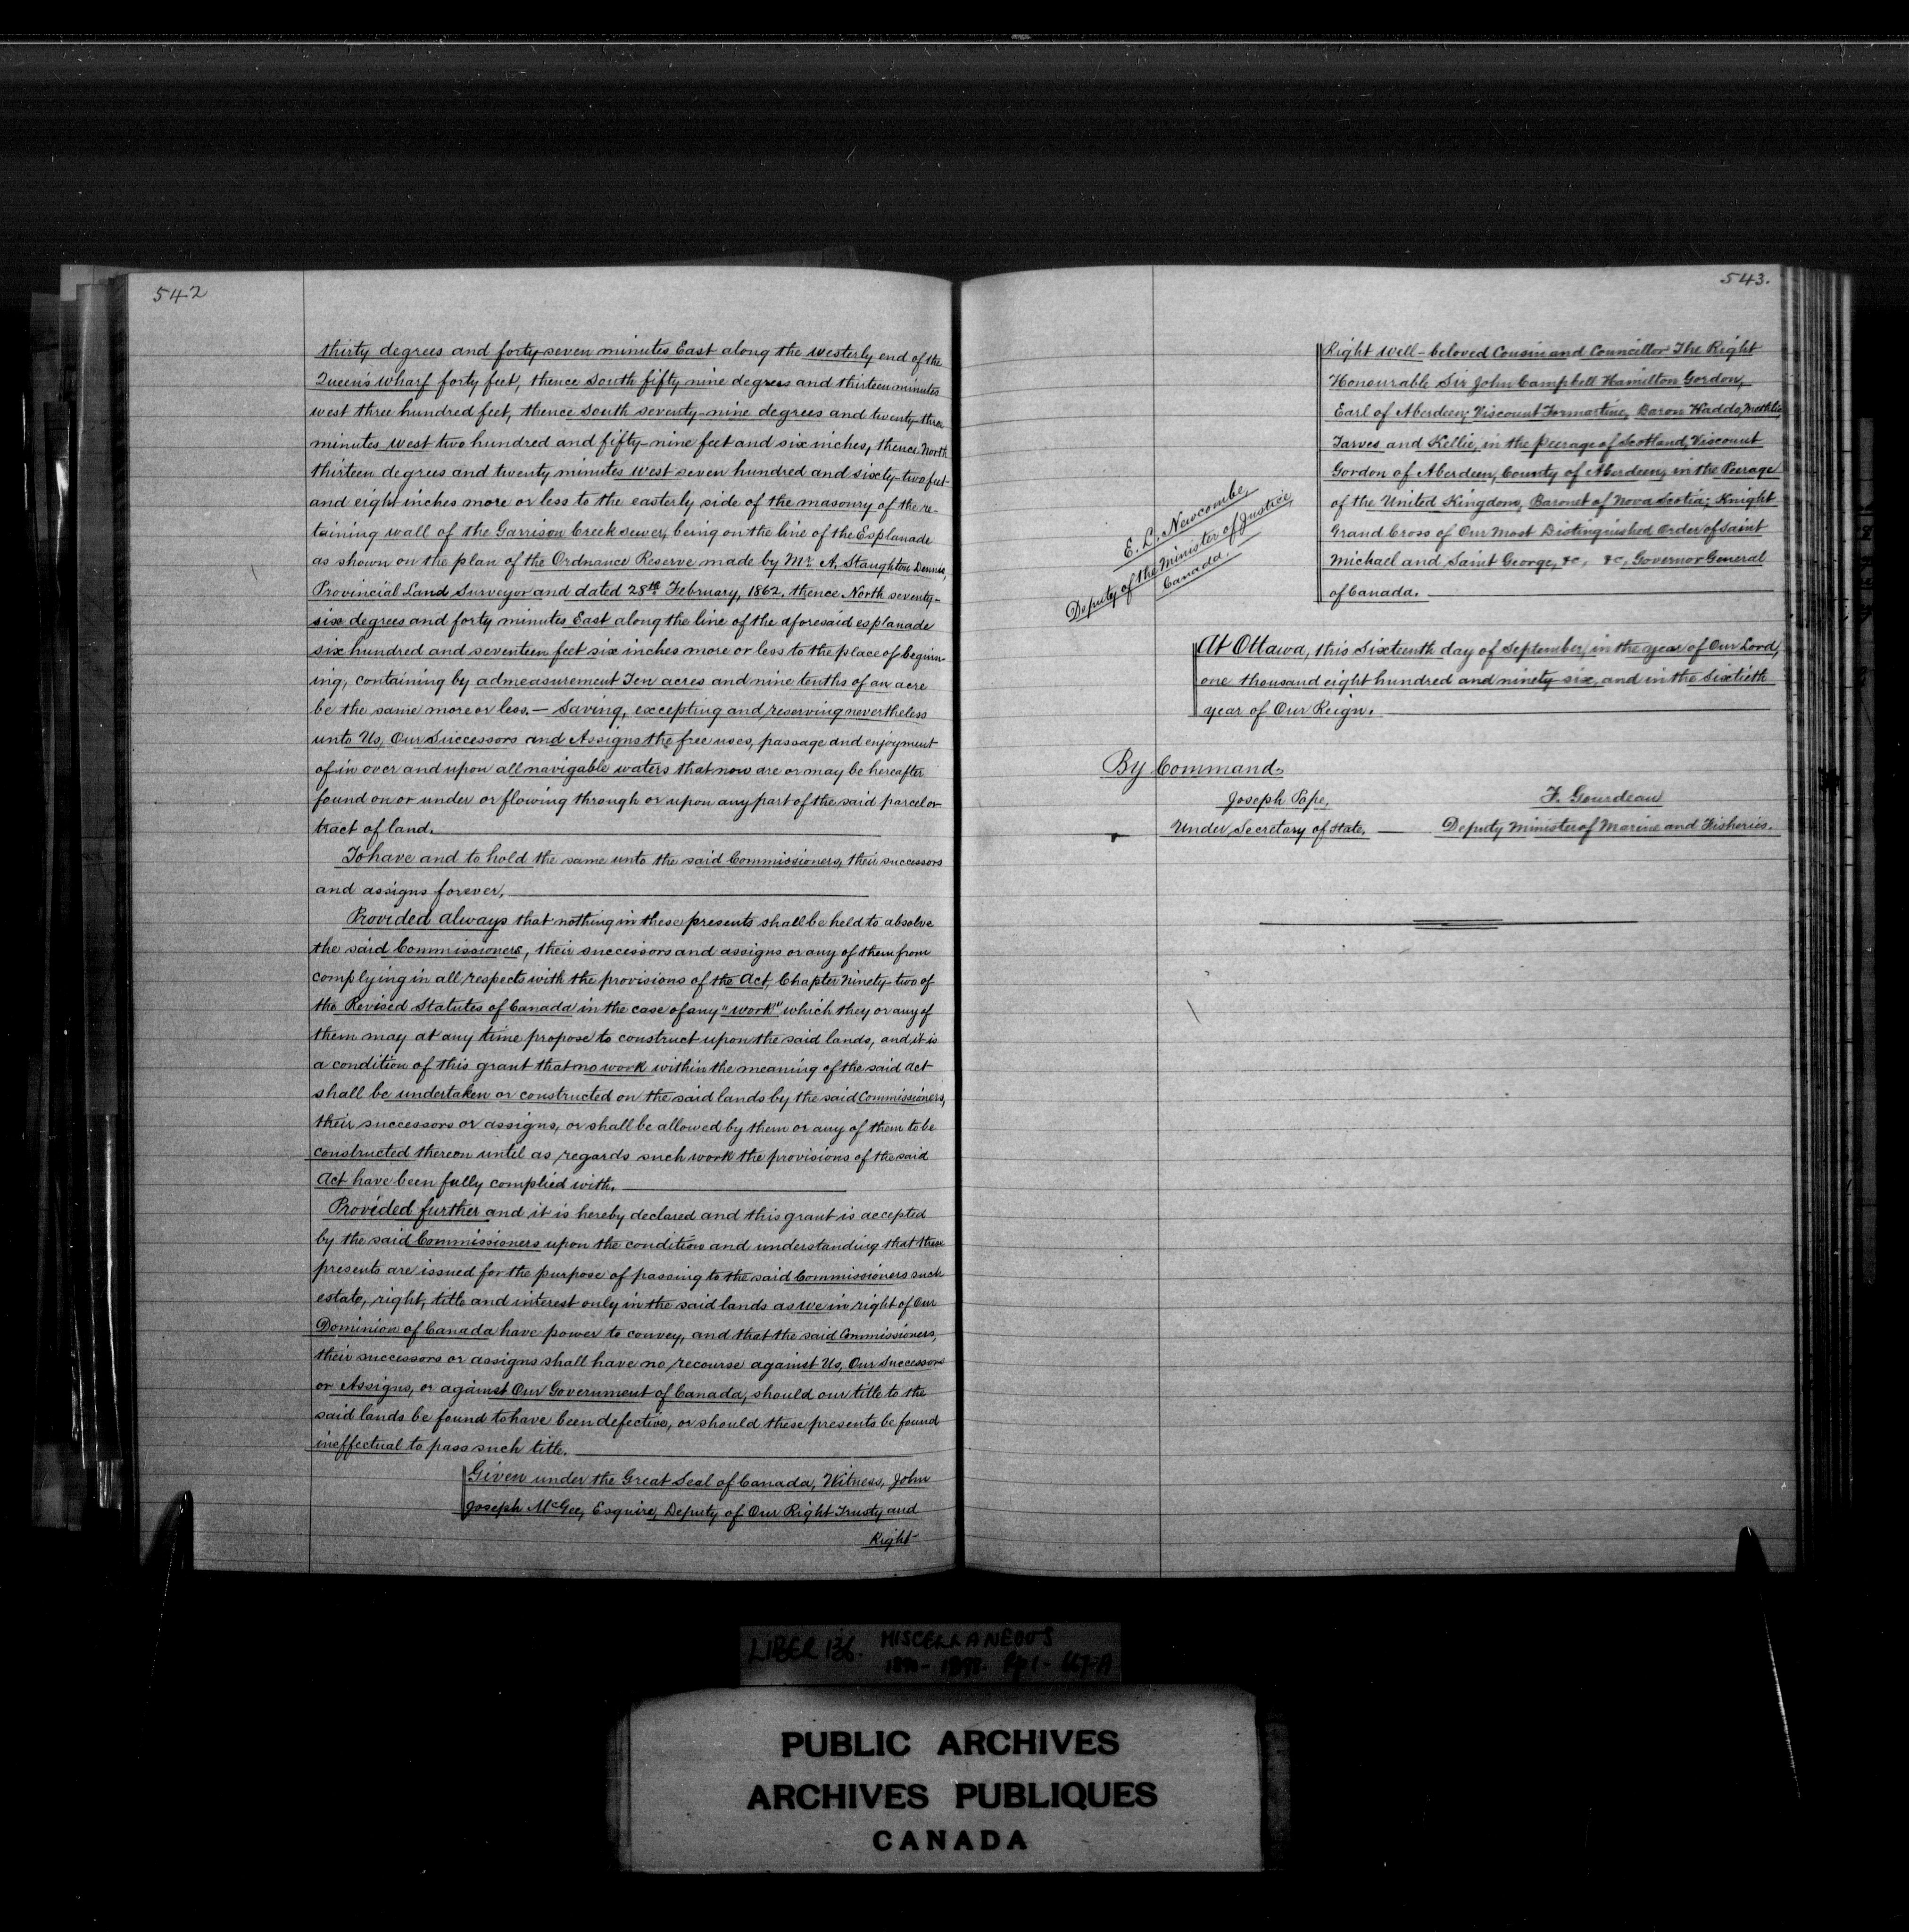 542
thirty degrees and forty-seven minutes East along the westerly end of the
Queen's wharf forty feet, thence South fifty nine degrees and thirteen minutes
west three hundred feet, thence South seventy-nine degrees and twenty-three
minutes west two hundred and fifty-nine feet and six inches, thence North
thirteen degrees and twenty minutes west seven hundred and sixty-two feet
and eight inches more or less to the easterly side of the masonry of the re-
taining wall of the Garrison Creek sewer, being on the line of the Esplanade
as shown on the plan of the Ordnance Reserve made by Mr. A. Staughton Dennis,
Provincial Land Surveyor and dated 28th February, 1862, thence North seventy-
six degrees and forty minutes East along the line of the aforesaid esplanade
six hundred and seventeen feet six inches more or less to the place of beginn-
ing, containing by admeasurement Ten acres and nine tenths of an acre
be the same more or less. — Saving, excepting and reserving nevertheless
unto Us, Our Successors and Assigns the free uses, passage and enjoyment
of in over and upon all navigable waters that now are or may be hereafter
found on or under or flowing through or upon any part of the said parcel or
tract of land.
To have and to hold the same unto the said Commissioners, their successors
and assigns forever.
Provided always that nothing in these presents shall be held to absolve
the said Commissioners, their successors and assigns or any of them from
complying in all respects with the provisions of the Act, Chapter Ninety-two of
the Revised Statutes of Canada in the case of any "work" which they or any of
them may at any time propose to construct upon the said lands, and it is
a condition of this grant that no work within the meaning of the said Act
shall be undertaken or constructed on the said lands by the said Commissioners,
their successors or assigns, or shall be allowed by them or any of them to be
constructed thereon until as regards such work the provisions of the said
Act have been fully complied with.
Provided further and it is hereby declared and this grant is accepted
by the said Commissioners upon the condition and understanding that these
presents are issued for the purpose of passing to the said Commissioners such
estate, right, title and interest only in the said lands as We in right of Our
Dominion of Canada have power to convey, and that the said Commissioners,
their successors or assigns shall have no recourse against Us, Our Successors
or Assigns, or against Our Government of Canada, should our title to the
said lands be found to have been defective, or should these presents be found
ineffectual to pass such title.
Given under the Great Seal of Canada, Witness, John
Joseph McGee, Esquire, Deputy of Our Right Trusty and
Right
543.
Right Well-beloved Cousin and Councillor The Right
Honourable Sir John Campbell Hamilton Gordon,
Earl of Aberdeen; Viscount Formartine, Baron Haddo, Methlic,
Tarves and Kellie, in the Peerage of Scotland, Viscount
Gordon of Aberdeen, County of Aberdeen, in the Peerage
of the United Kingdom, Baronet of Nova Scotia; Knight
Grand Cross of Our Most Distinguished Order of Saint
Michael and Saint George, &c, &c, Governor General
of Canada.
E. L. Newcombe,
Deputy of the Minister of Justice,
Canada.
At Ottawa, this Sixteenth day of September, in the year of Our Lord,
one thousand eight hundred and ninety-six, and in the Sixtieth
year of Our Reign.
By Command,
Joseph Pope,
Under Secretary of State. —
F. Gourdeau
Deputy Minister of Marine and Fisheries.
LIBER 136. MISCELLANEOUS
PUBLIC ARCHIVES
ARCHIVES PUBLIQUES
CANADA